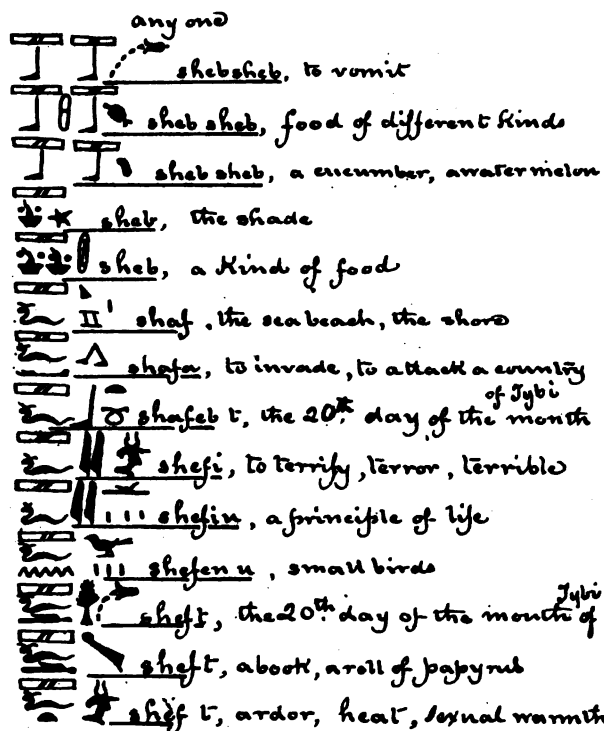 any one
shebsheb, to vomit
sheb sheb, food of different kinds
sheb sheb, a cucumber, a watermelon
sheb, the shade
sheb, a kind of food
shaf, the sea beach, the shore
shafa, to invade, to attack a country
of Tybi
shafeb t, the 20th day of the month
shefi, to terrify, terror, terrible
shefiu, a principle of life
shefen u, small birds
Tybi
sheft, the 20th day of the month of
sheft, a book, a roll of papyrus
shef t, ardor, heat, sexual warmth